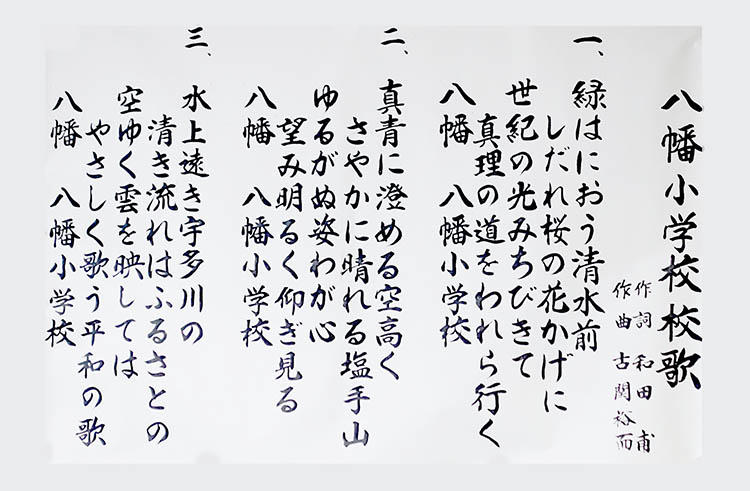 八幡小学校校歌
作詞 和田甫
作曲 古関裕而
一、
緑はにおう清水前
しだれ桜の花かげに
世紀の光みちびきて
真理の道をわれら行く
八幡 八幡小学校
二、
真青に澄める空高く
さやかに晴れる塩手山
ゆるがぬ姿わが心
望み明るく仰ぎ見る
八幡 八幡小学校
三、
水上遠き宇多川の
清き流れはふるさとの
空ゆく雲を映しては
やさしく歌う平和の歌
八幡 八幡小学校